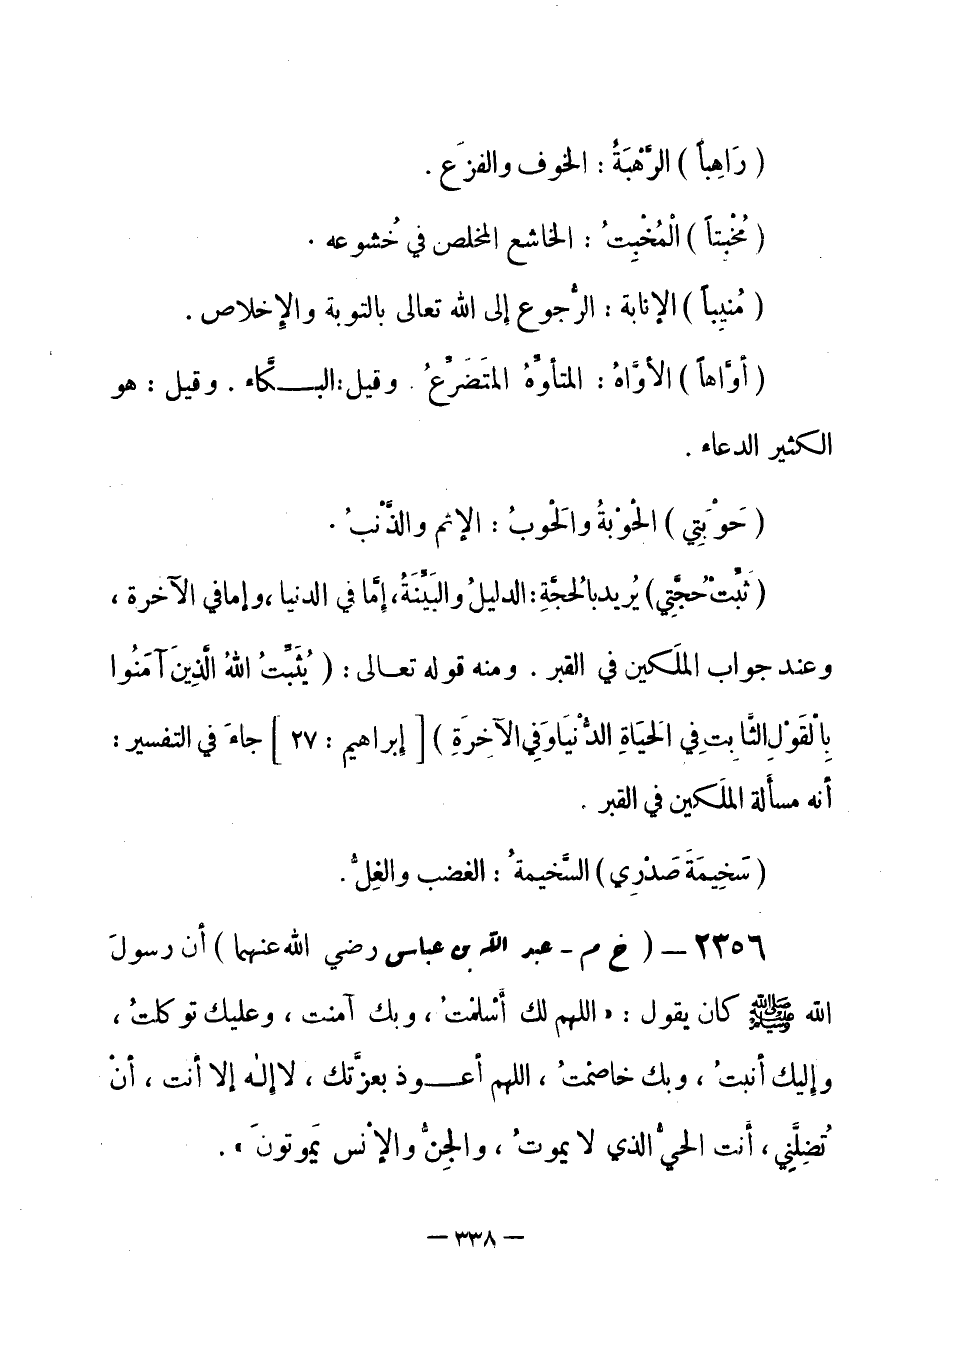 ( رَاهِباً ) الرَّهْبَةُ : الخوف والفزَع .
( مُخْبتاً ) الْمُخْبِتُ : الخاشع المخلص في خُشوعه .
( مُنيباً ) الإنابة : الرُّجوع إلى الله تعالى بالتوبة والإخلاص .
( أوَّاهاً ) الأوَّاهُ : المتأوِّهُ المتَضَرِّعُ . وقيل : البـكَّاء . وقيل : هو
الكثير الدعاء .
( حَوْبَتِي ) الحْوْبةُ والحَوبُ : الإثم والذَّنْبُ .
( ثَبِّتْ حُجَّتِي ) يُريد بالحجَّةِ : الدليلُ والبَيِّنَةُ ، إمَّا في الدنيا ، وإما في الآخرة ،
وعند جواب الملَكين في القبر . ومنه قوله تعـالى : ( يُثَبِّتُ اللهُ الَّذِينَ آمَنُوا
بِالْقَوْلِ الثَّابِتِ فِي الحَيَاةِ الدُّنْيَا وَفِي الآخِرَةِ ) [ إبراهيم : ٢٧ ] جاءَ في التفسير :
أنه مسألة الملَكين في القبر .
( سَخِيمَةَ صَدْرِي ) السَّخيمةُ : الغضب والغِلُّ .
٢٣٥٦ ـ ( خ م ـ عبد الله بن عباس رضي الله عنهما ) أن رسولَ
الله ﷺ كان يقول : « اللهم لك أسْلمْتُ ، وبك آمنت ، وعليك توكلتُ ،
وإليك أنبتُ ، وبك خاصمْتُ ، اللهم أعـوذ بعزَّتك ، لا إلـٰه إلا أنت ، أنْ
تُضِلَّنِي ، أنت الحيُّ الذي لا يموتُ ، والجِنُّ والإنْس يَموتونَ » .
— ٣٣٨ —